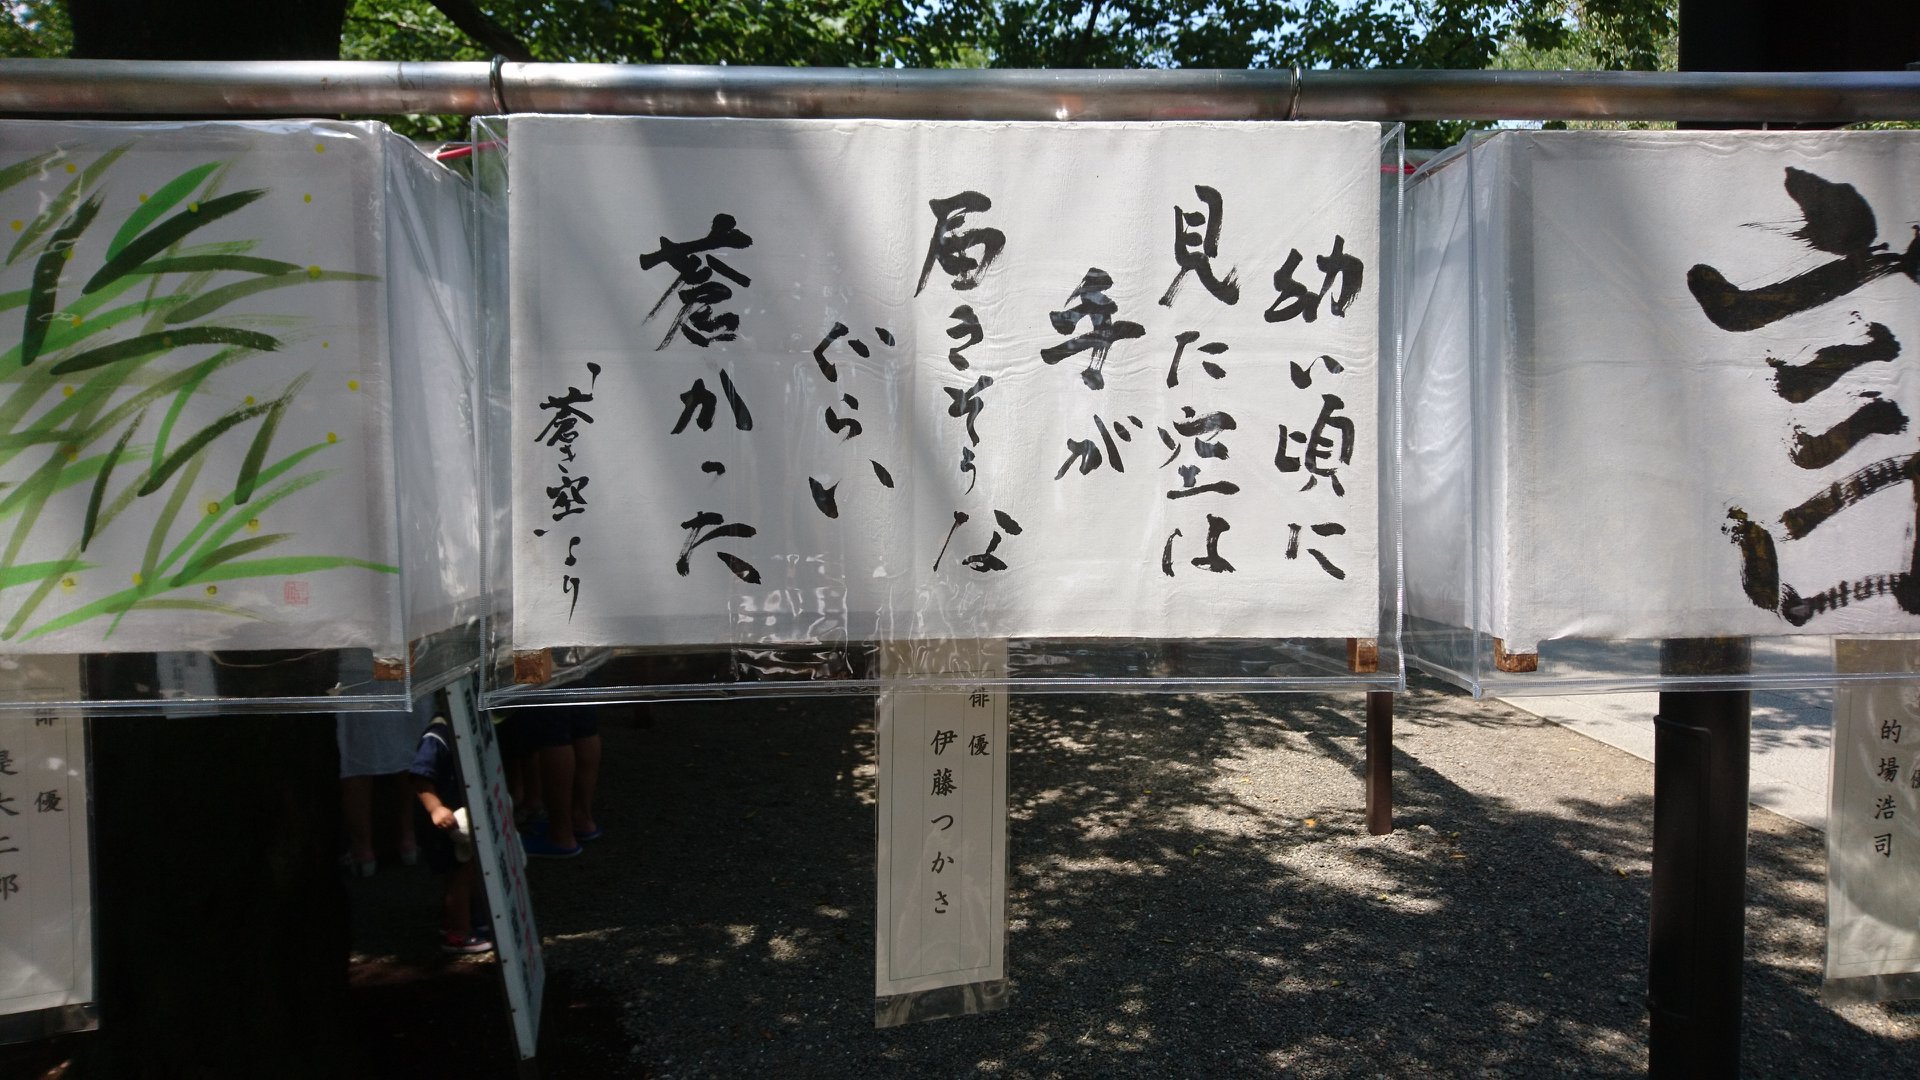 幼い頃に
見た空は
手が
届きそうな
ぐらい
蒼かった
「蒼き空」より
俳優
伊藤つかさ
的場浩司
俳優